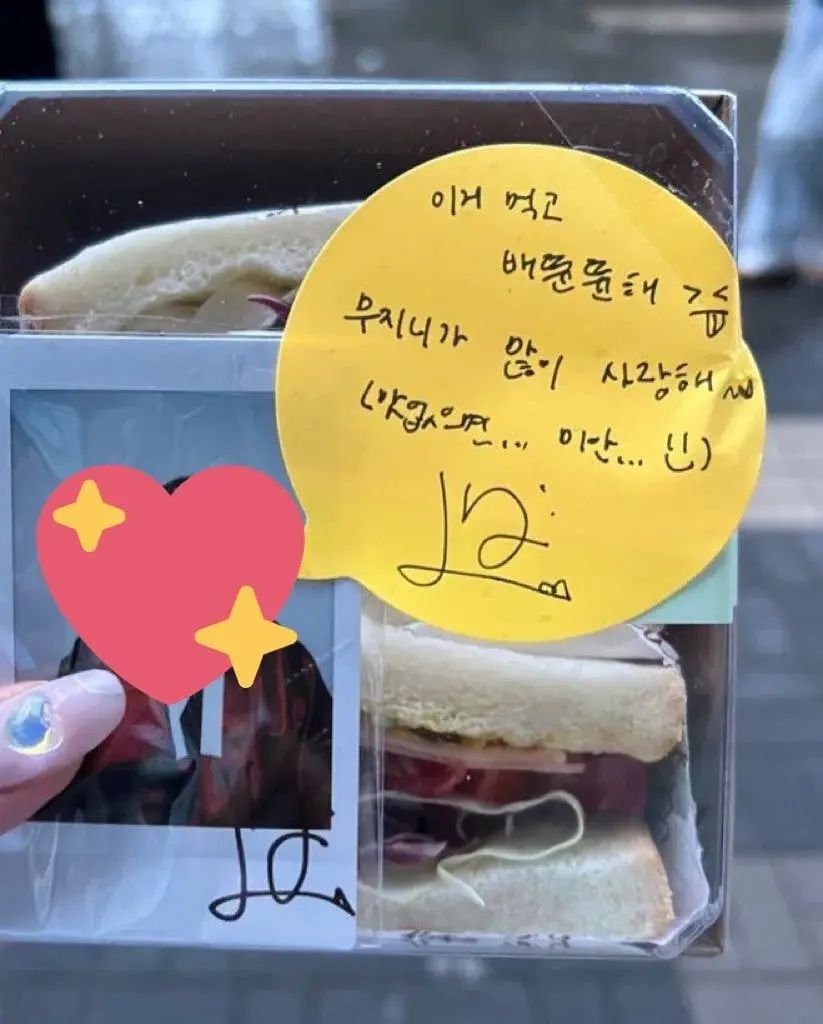 이거 먹고
배뜐뜐해 ><
무지니가 많이 사랑해~~
(맛없으면... 미안... !!)